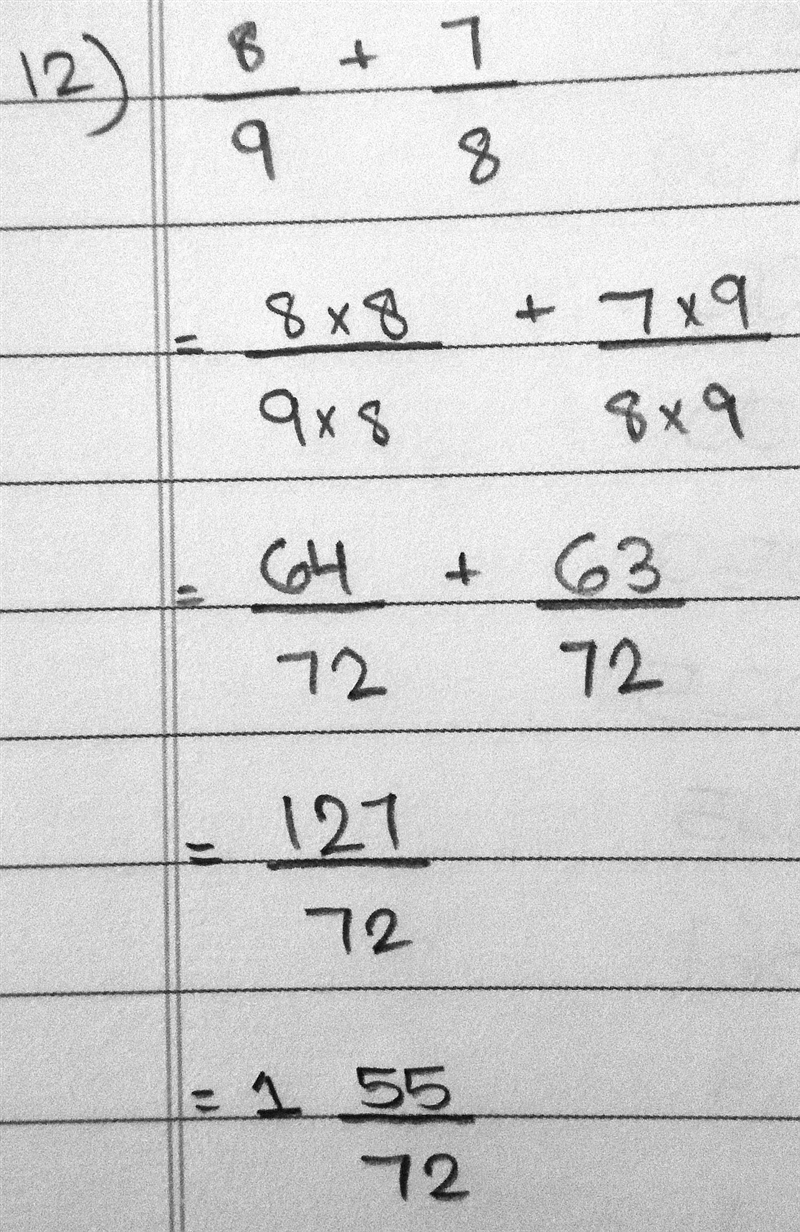 12) 8/9 + 7/8
= 8×8/9×8 + 7×9/8×9
= 64/72 + 63/72
= 127/72
= 1 55/72